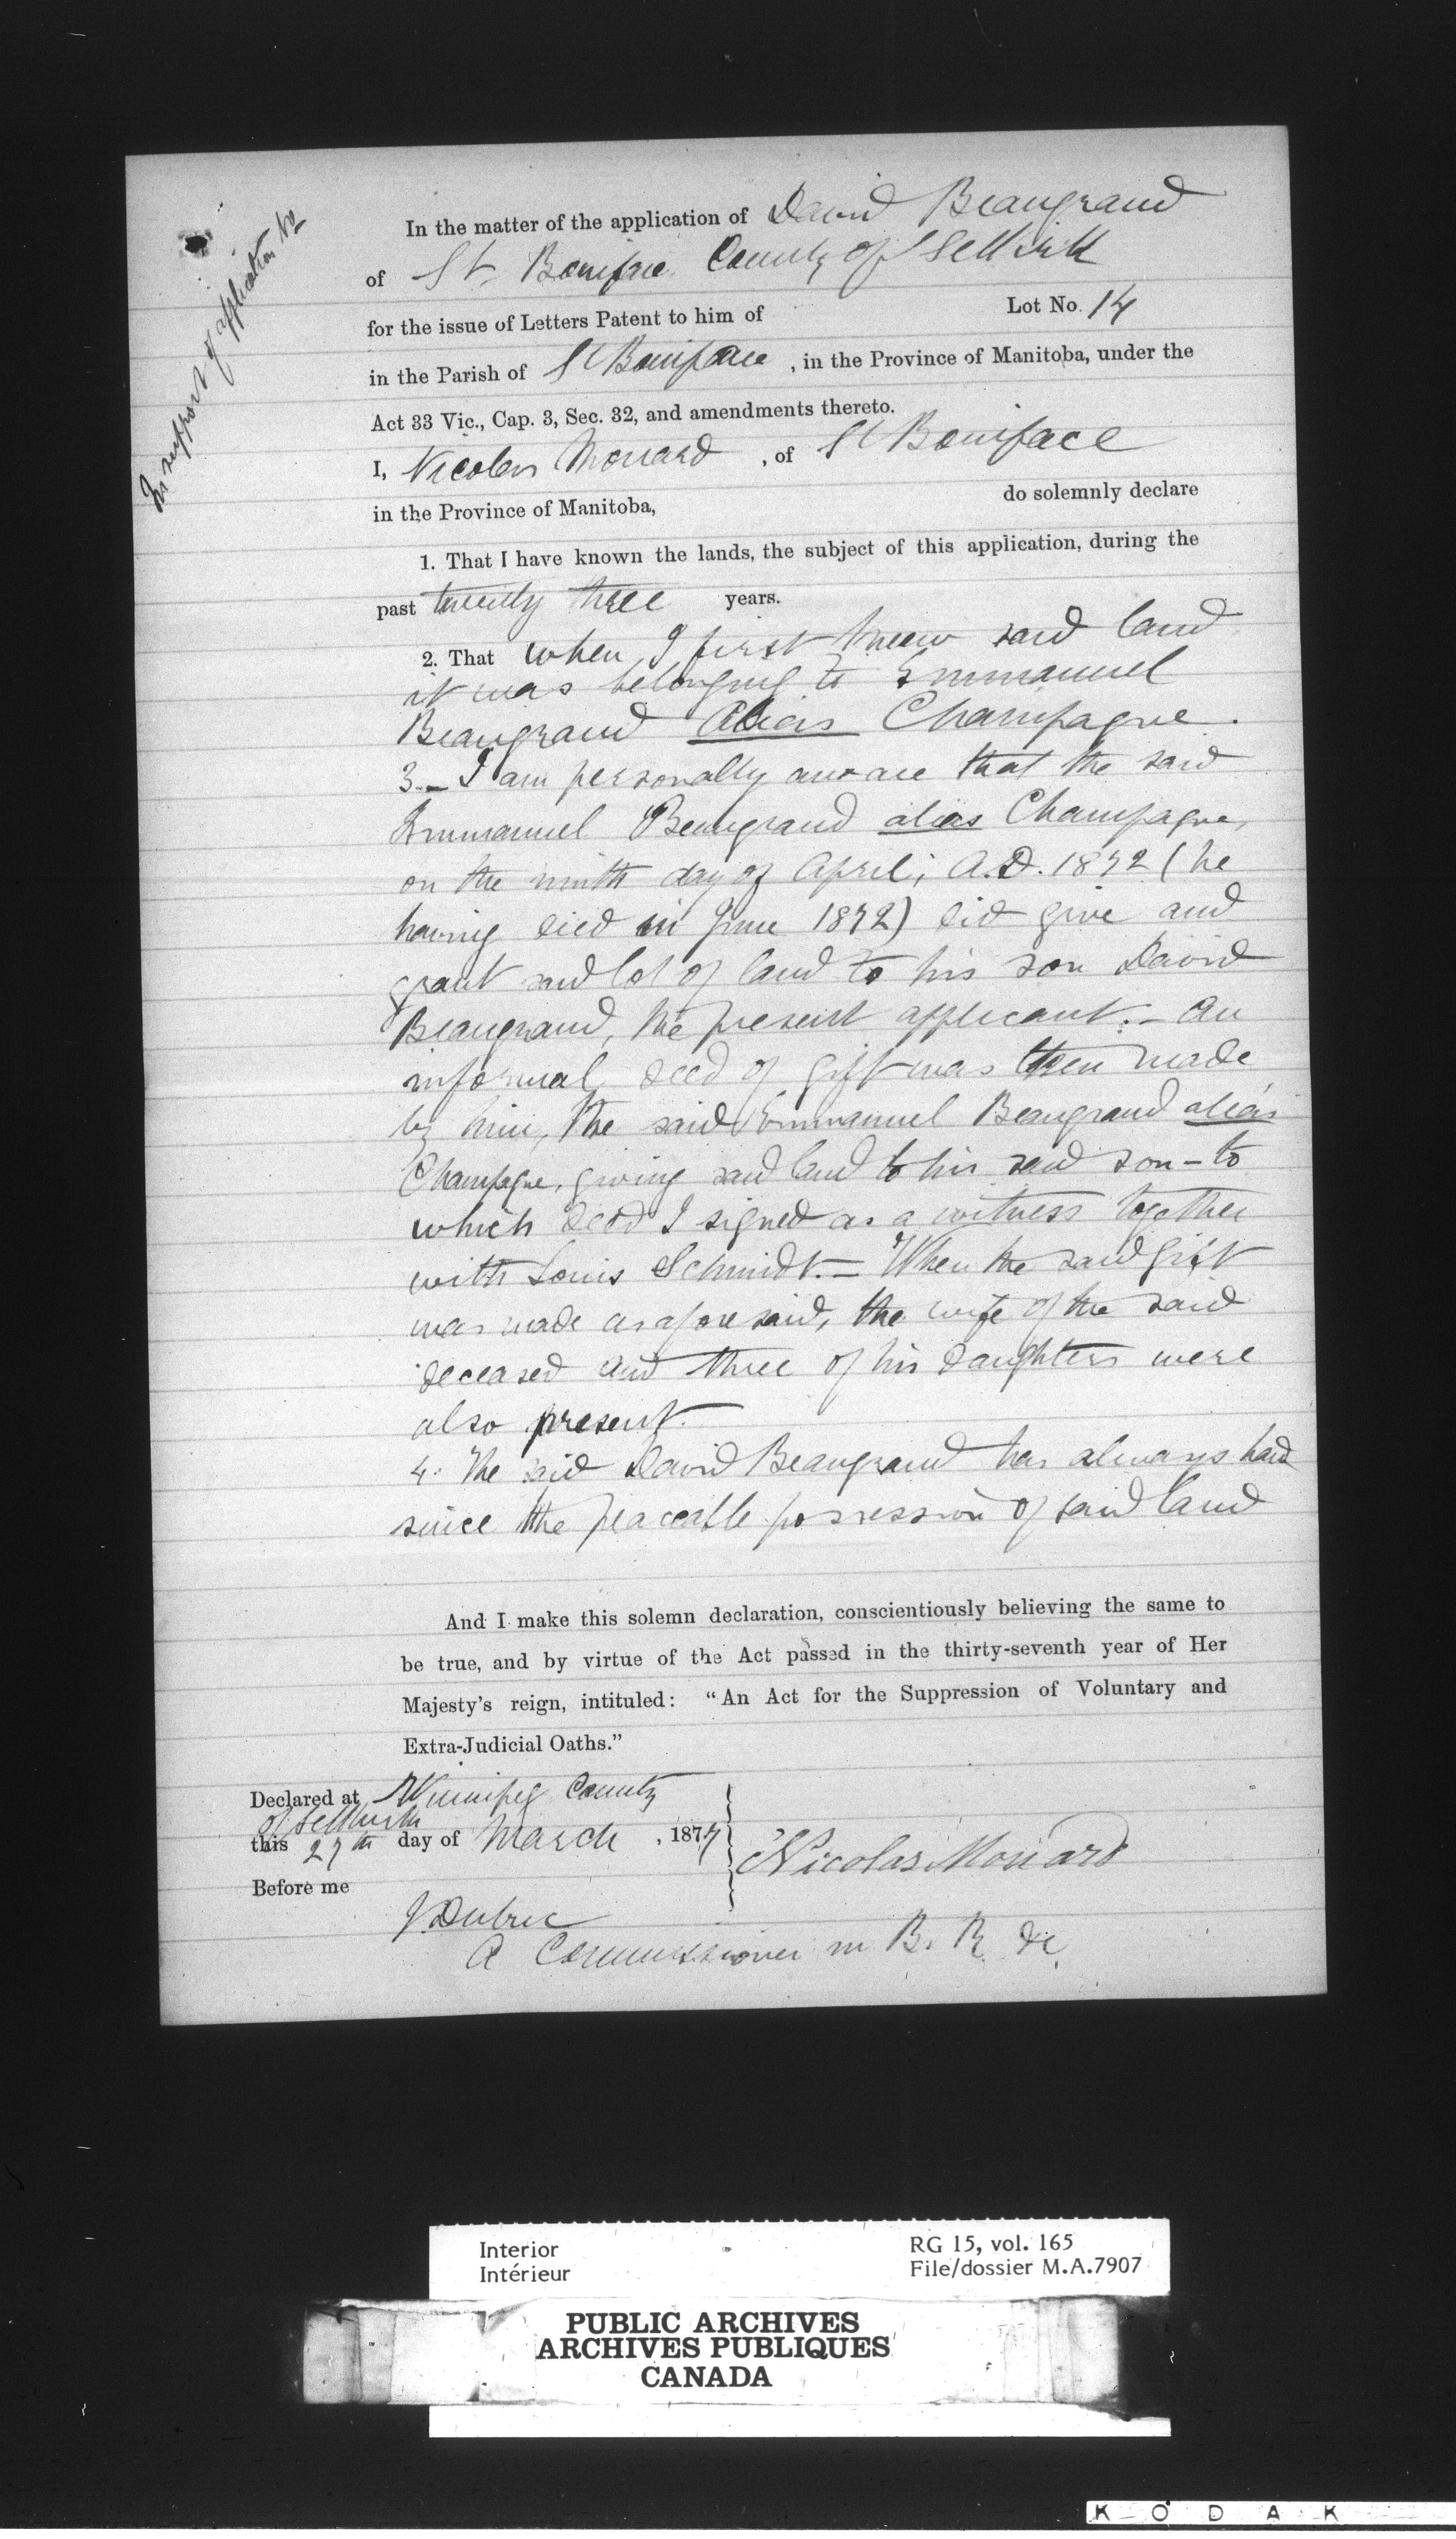 In support of application No
In the matter of the application of David Beaugrand
of St. Boniface County of Selkirk
for the issue of Letters Patent to him of Lot No. 14
in the Parish of St Boniface, in the Province of Manitoba, under the
Act 33 Vic., Cap. 3, Sec. 32, and amendments thereto.
I, Nicolas Monard, of St Boniface
in the Province of Manitoba, do solemnly declare
1. That I have known the lands, the subject of this application, during the
past twenty three years.
2. That when I first knew said land
it was belonging to Emmanuel
Beaugrand alias Champagne.
3.– I am personally aware that the said
Emmanuel Beaugrand alias Champagne,
on the ninth day of April, A.D. 1872 (he
having died in June 1872) did give and
grant said lot of land to his son David
Beaugrand, the present applicant.– An
informal deed of gift was then made
by him, the said Emmanuel Beaugrand alias
Champagne, giving said land to his said son – to
which deed I signed as a witness together
with Louis Schmidt.– When the said gift
was made as aforesaid, the wife of the said
deceased and three of his daughters were
also present.
4. The said David Beaugrand has always had
since the peaceable possession of said land
And I make this solemn declaration, conscientiously believing the same to
be true, and by virtue of the Act passed in the thirty-seventh year of Her
Majesty's reign, intituled: "An Act for the Suppression of Voluntary and
Extra-Judicial Oaths."
Declared at Winnipeg County
of Selkirk
this 27th day of March, 1877
Nicolas Monard
Before me
J. Dubuc
A Commissioner in B. R. &c
Interior
Intérieur
RG 15, vol. 165
File/dossier M.A.7907
PUBLIC ARCHIVES
ARCHIVES PUBLIQUES
CANADA
KODAK